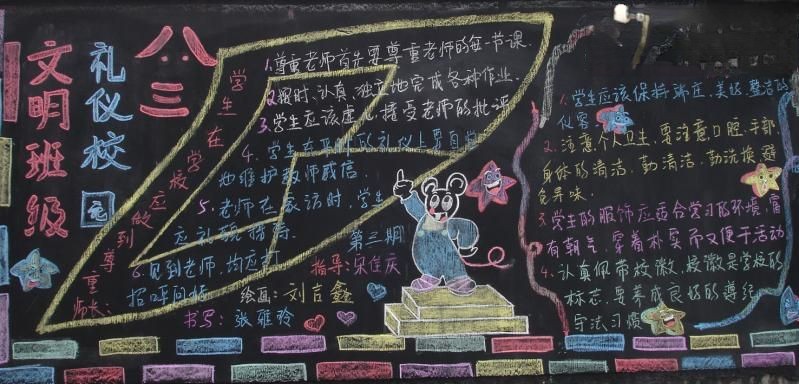 文明班级
礼仪校园
八三
学生在校学应做到尊重师长:
1.尊重老师首先要尊重老师的每一节课.
2.按时、认真、独立地完成各种作业.
3.学生应该虚心接受老师的批评
4.学生在平时的礼仪上要自觉
地维护教师威信.
5.老师在家访时,学生
应礼貌
6.见到老师,均应打
招呼问好
第三期
指导:宋佳庆
绘画:刘吉鑫
书写:张雅玲
1.学生应该保持端庄、美好、整洁的
仪容.
2.注意个人卫生,要注意口腔、手部、
身体的清洁,勤清洁、勤洗换,避
免异味.
3.学生的服饰应适合学习的环境,富
有朝气,穿着朴实而又便于活动
4.认真佩带校徽,校徽是学校的
标志,要养成良好的遵纪
守法习惯